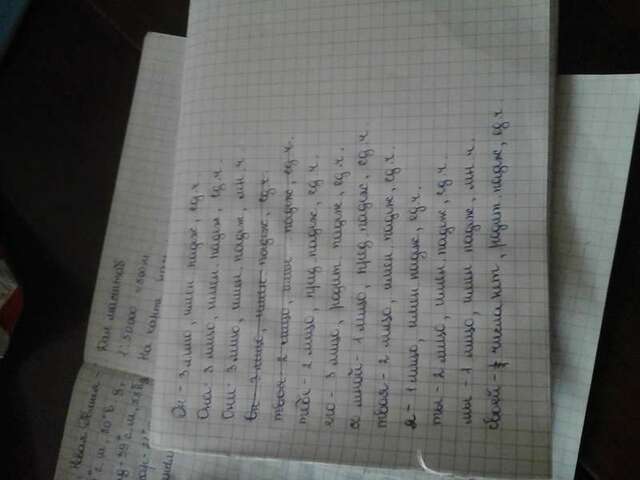 Новая Земля -
г. ш, 50° в. д,
Дан масштаб
1:50000 = 500 м
На карте
Он - 3 лицо, имен падеж, ед.ч.
Она - 3 лицо, имен. падеж, ед.ч.
Они - 3 лицо, имен. падеж, мн.ч.
Он - 3 лицо, имен падеж, ед.ч.
твоя - 2 лицо, имен. падеж, ед.ч.
тебе - 2 лицо, пред падеж, ед.ч.
его - 3 лицо, родит. падеж, ед.ч.
со мной - 1 лицо, пред. падеж, ед.ч.
твоя - 2 лицо, имен. падеж, ед.ч.
я - 1 лицо, имен падеж, ед.ч.
ты - 2 лицо, имен. падеж, ед.ч.
мы - 1 лицо, имен падеж, мн.ч.
своей - числа нет, родит. падеж, ед.ч